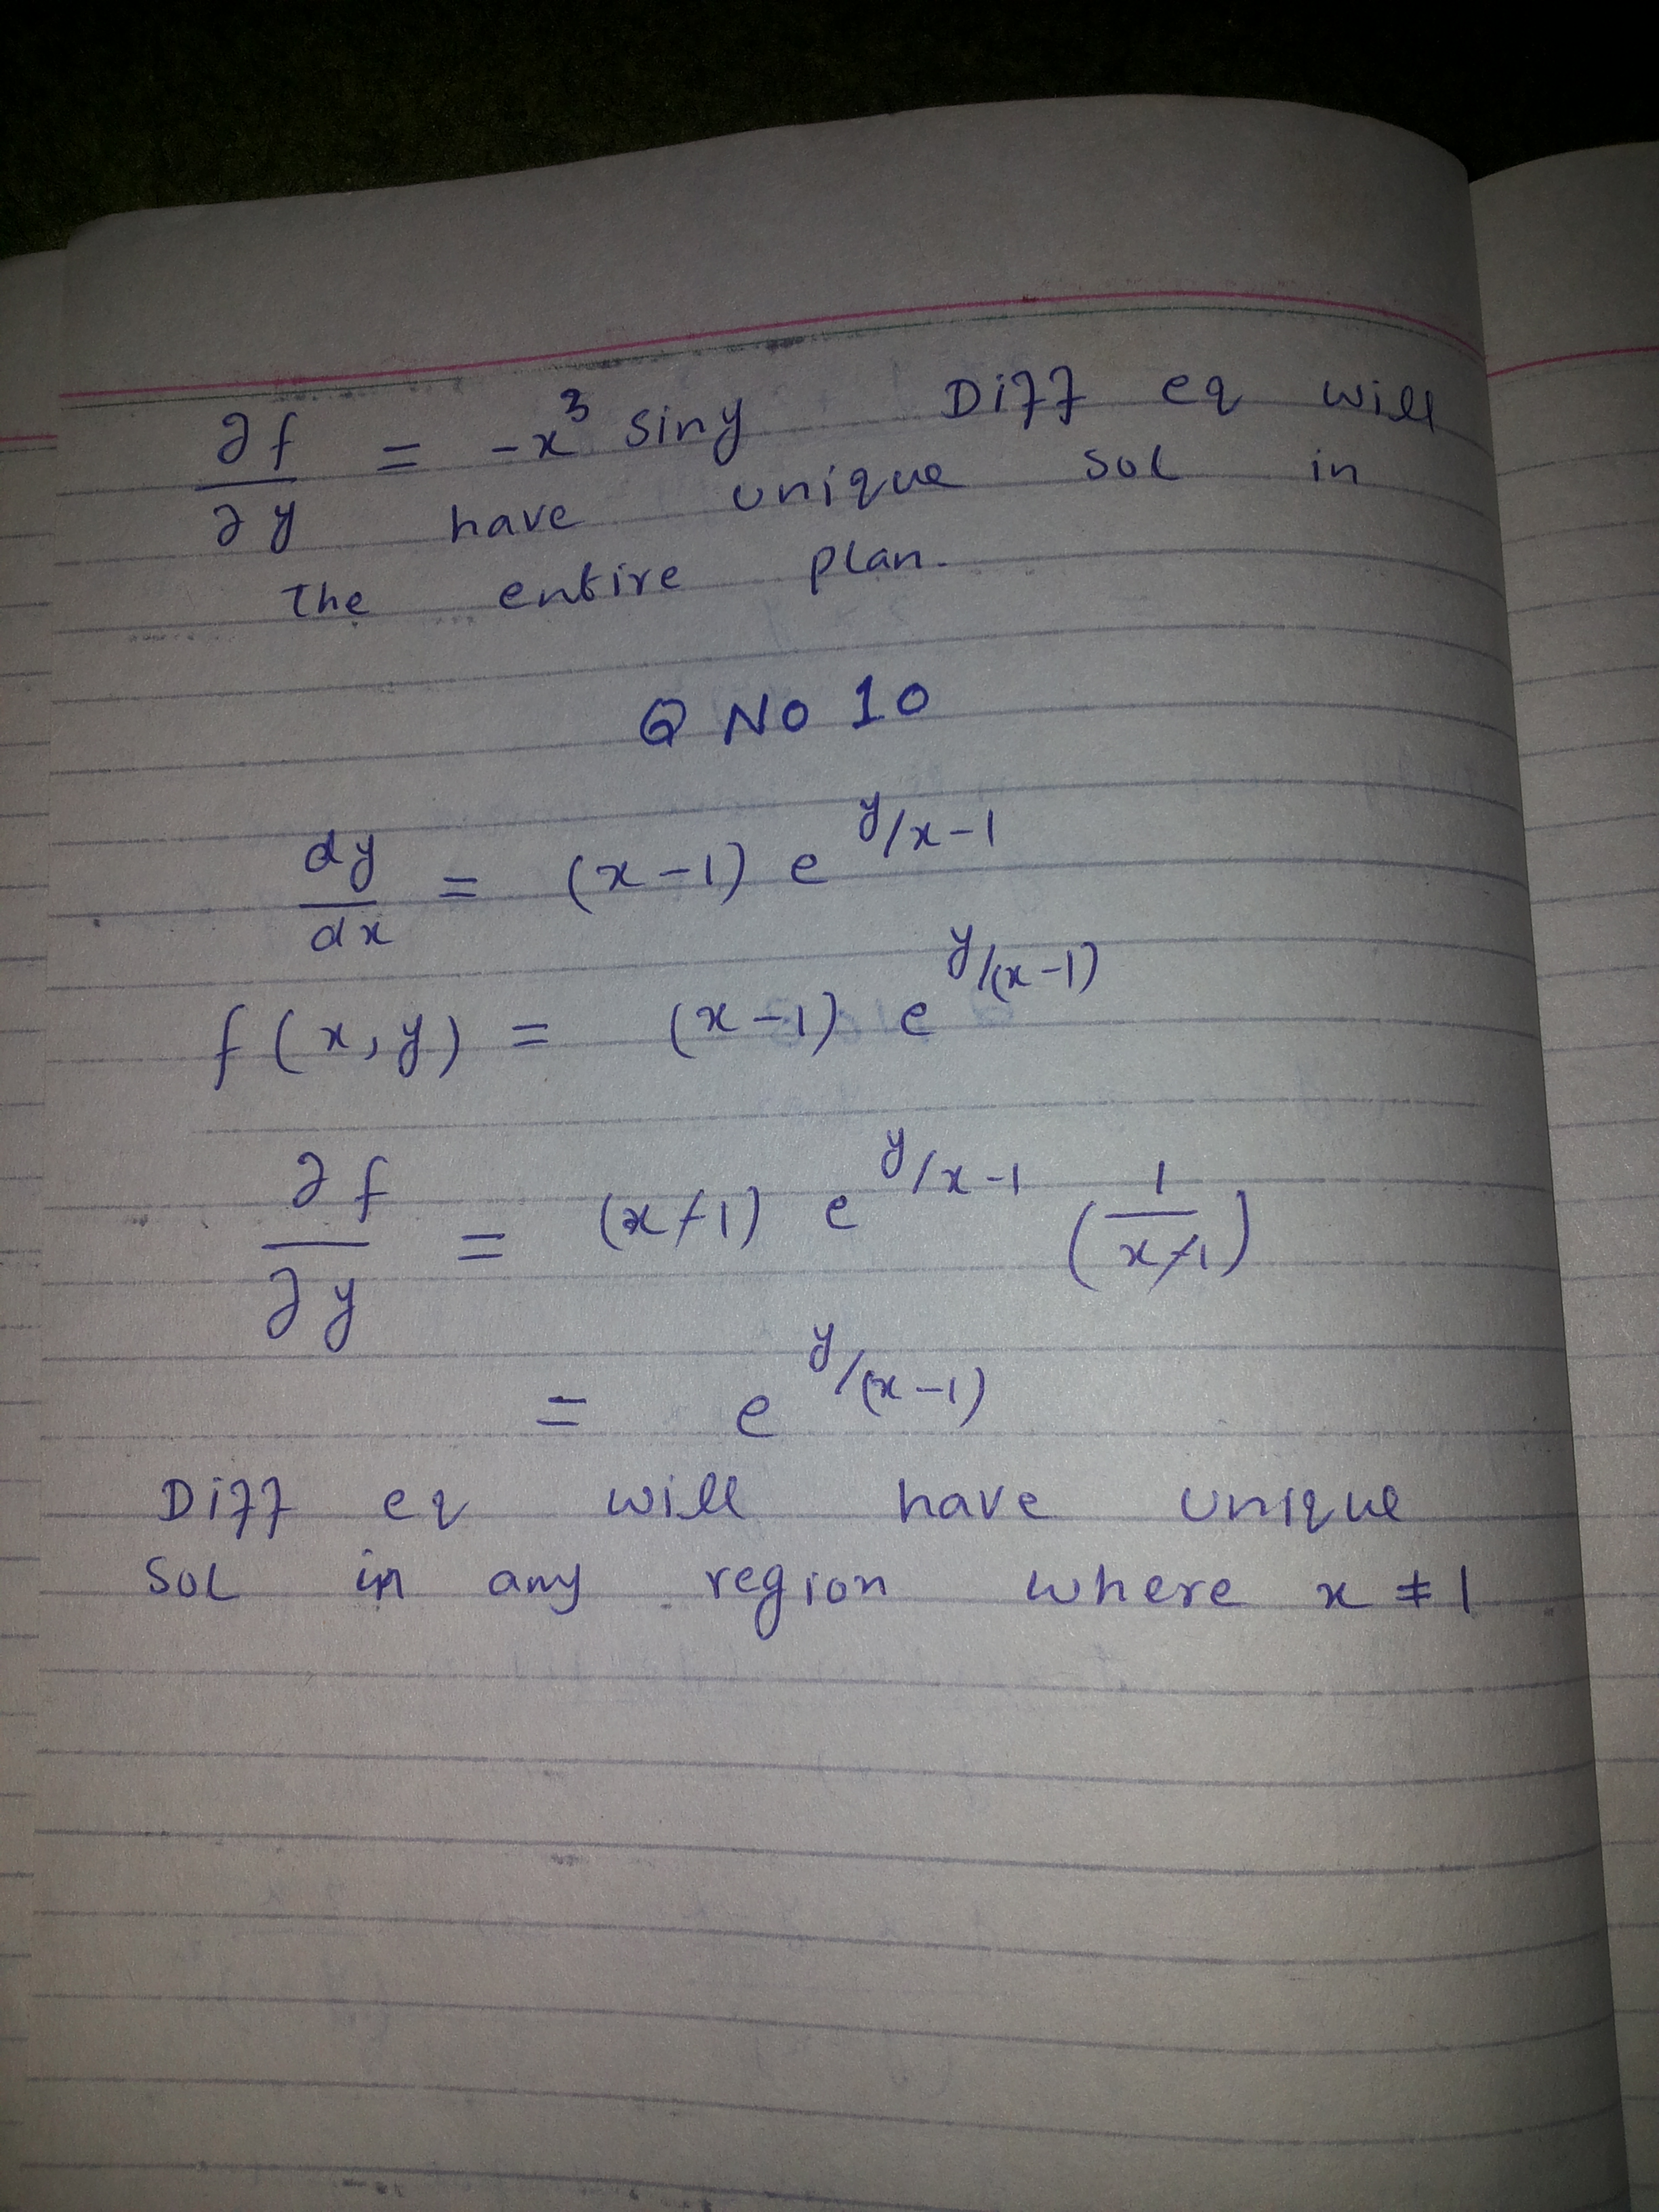 ∂f/∂y = -x³ siny Diff eq will
have unique sol in
the entire plan.
Q No 10
dy/dx = (x-1) e^y/x-1
f(x,y) = (x-1) e^y/(x-1)
∂f/∂y = (x-1) e^y/x-1 (1/x-1)
= e^y/(x-1)
Diff eq will have unique
sol in any region where x ≠ 1